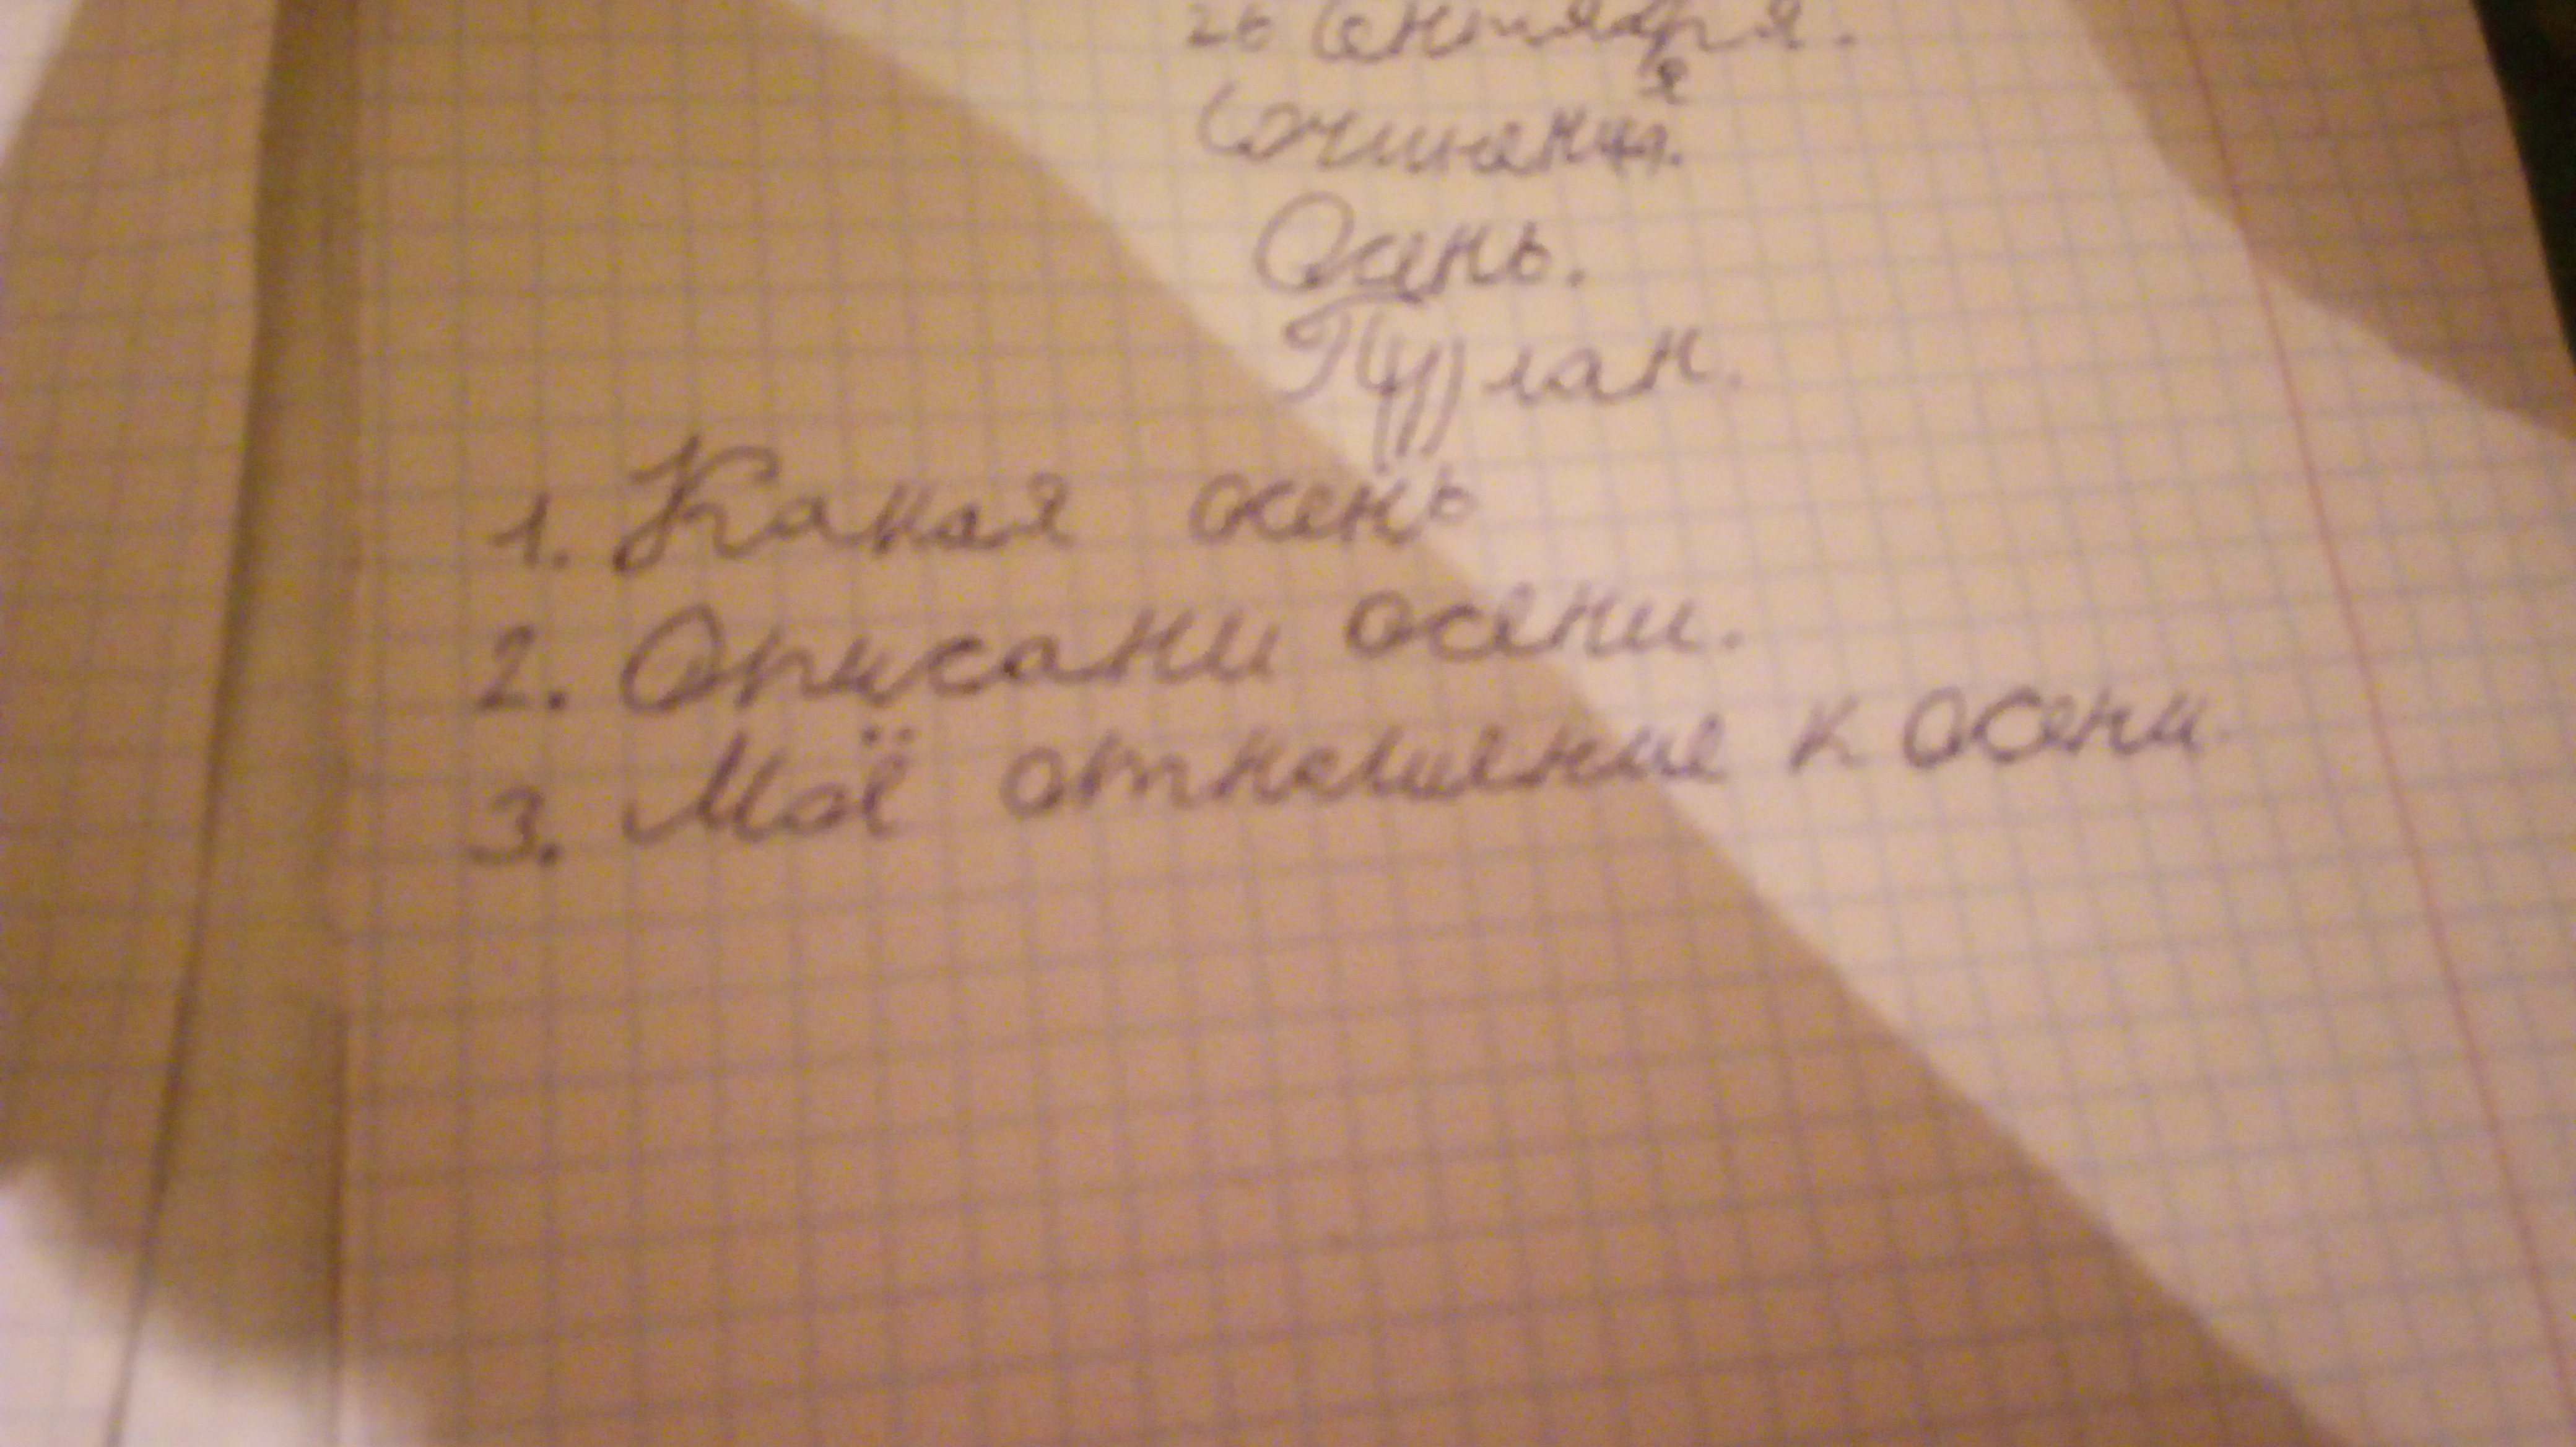 26 Сентября.
Сочинения.
Осень.
План.
1. Какая осень
2. Описани осени.
3. Моё отношение к осени.